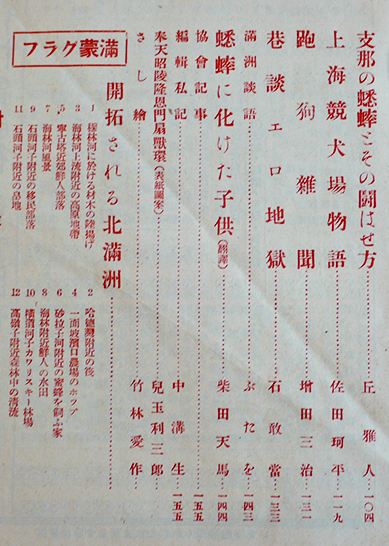 支那の蟋蟀とその闘はせ方……丘雅人…一〇四
上海競犬場物語……佐田珂平…一一九
跑狗雑聞……増田三治…一三一
巷談エロ地獄……石敢當…一三三
滿洲談語……ぶたを…一四三
蟋蟀に化けた子供(謝產)……柴田天馬…一四四
協會記事……一五五
編輯私記……中溝生…一五五
奉天昭陵隆恩門扉獸環(表紙圖案)……兒玉利三郎
さし繪……竹林愛作
滿蒙グラフ
開拓される北滿洲
1 穆林河に於ける材木の陸揚げ
2 哈德灣附近の筏
3 海林河上流附近の高原地帶
4 一面坡濱口農場のホップ
5 寧古塔近郊鮮人部落
6 砂粒子河附近の蜜蜂を飼ふ家
7 海林河風景
8 海林附近鮮人の水田
9 石頭河子附近の移民部落
10 橫道河子カワリスキー林場
11 石頭河子附近の濕地
12 高嶺子附近森林中の清流